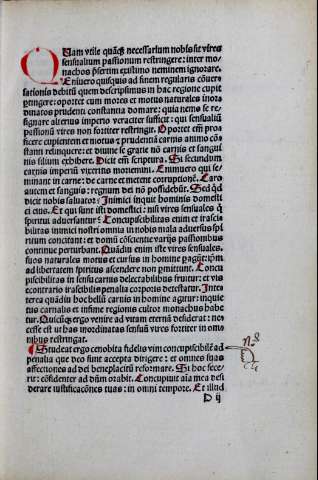 Quam vtile quãq̃ necessarium nobis sit vires
sensualium passionum restringere: inter mo-
nachos p̃sertim existimo neminem ignorare.
Enimuero quisquis ad finem regularis cõuer
sationis debitũ quem descripsimus in hac regione cupit
ꝑtingere: oportet cum mores et motus naturales inor
dinatos prudenti constantia domare: quia nemo se re-
signare alterius imperio veraciter sufficit: qui sensualiũ
passionũ vires non fortiter restringit. Oportet em̃ proa
ficere cupientem et motus ꝓ prudentiã carnis animo cõ
stanti relinquere: et diuine se gratie nõ carnis et sangui
nis filium exhibere. Dicit em̃ scriptura. Si secundum
carnis imperiũ vixerino moriemini. Enimuero qui se-
minant in carne: de carne et metent corruptionẽ. Caro
autem et sanguis: regnum dei nõ possidebũt. Sed qd̃
dicit nobis saluator? Inimici inquit hominis domesti
ci eius. Et qui sunt isti domestici: nisi vires sensuales q̃
spiritui aduersantur? Concupiscibilitas enim et irascibi
litas inimici nostri omnia in nobis mala aduersus spi
ritum concitant: et domũ cõscientie varijs passionibus
continue perturbant. Quãdiu enim iste vires sensuales
suos naturales motus et cursus in homine pagũt: sp̃m
ad libertatem spiritus ascendere non pmittunt. Concu
piscibilitas in sensu carnis delectabilibus fruitur: et vis
econtrario irascibilis penalia corporis detestatur. Inte
terea quãdiu hoc bellũ carnis in homine agitur: inquie
tus carnalis et infime regionis cultor monachus habe
tur. Quicũq̃ ergo venire ad vitam eternã desiderat: ne
cesse est vt has inordinatas sensuũ vires fortiter in omi
nibus restringat.
Studeat ergo cenobita fidelis vim concupiscibilẽ ad
penalia que deo sunt accepta dirigere: et omnes suas
affectiones ad dei beneplacitũ reformare. Si hoc fece
rit: cõfidenter ad dñm orabit. Concupiuit aĩa mea desi
derare iustificatiões tuas: in omni tempore. Et illud
D ij